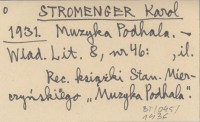 STROMENGER Karol
1931. Muzyka Podhala. –
Wiad. Lit. 8, nr 46: , il.
Rec. książki Stan. Mier-
czyńskiego „Muzyka Podhala".